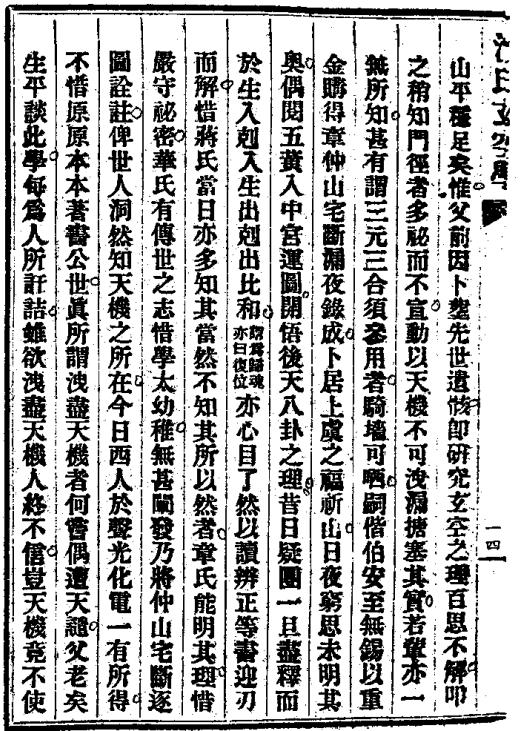 沈氏玄空學
一四
山平穩足矣惟父前因卜塟先世遺骸卽硏究玄空之理百思不解叩
之稍知門徑者多祕而不宣動以天機不可洩漏搪塞其實若輩亦一
無所知甚有謂三元三合須參用者騎墻可哂嗣偕伯安至無錫以重
金購得章仲山宅斷漏夜錄成卜居上虞之福祈山日夜窮思未明其
奧偶閱五黃入中宮運圖開悟後天八卦之理昔日疑團一旦盡釋而
於生入剋入生出剋出比和謂爲歸魂亦曰復位亦心目了然以讀辨正等書迎刃
而解惜蔣氏當日亦多知其當然不知其所以然者章氏能明其理惜
嚴守祕密華氏有傳世之志惜學太幼稚無甚闡發乃將仲山宅斷逐
圖詮註俾世人洞然知天機之所在今日西人於聲光化電一有所得
不惜原原本本著書公世眞所謂洩盡天機者何嘗偶遭天譴父老矣
生平談此學每爲人所訐詰雖欲洩盡天機人終不信豈天機竟不使